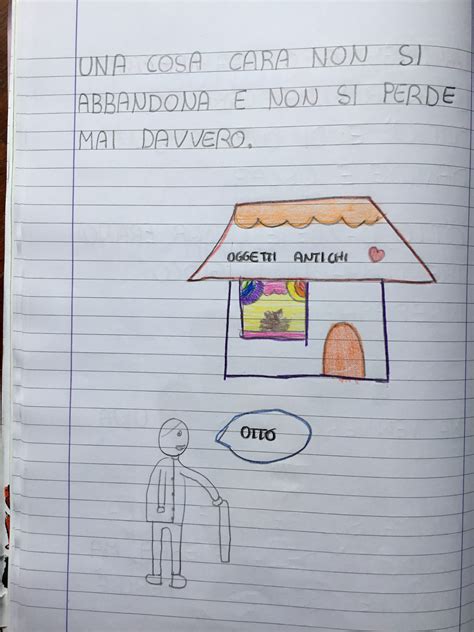 UNA COSA CARA NON SI
ABBANDONA E NON SI PERDE
MAI DAVVERO.
OGGETTI ANTICHI
OTTO